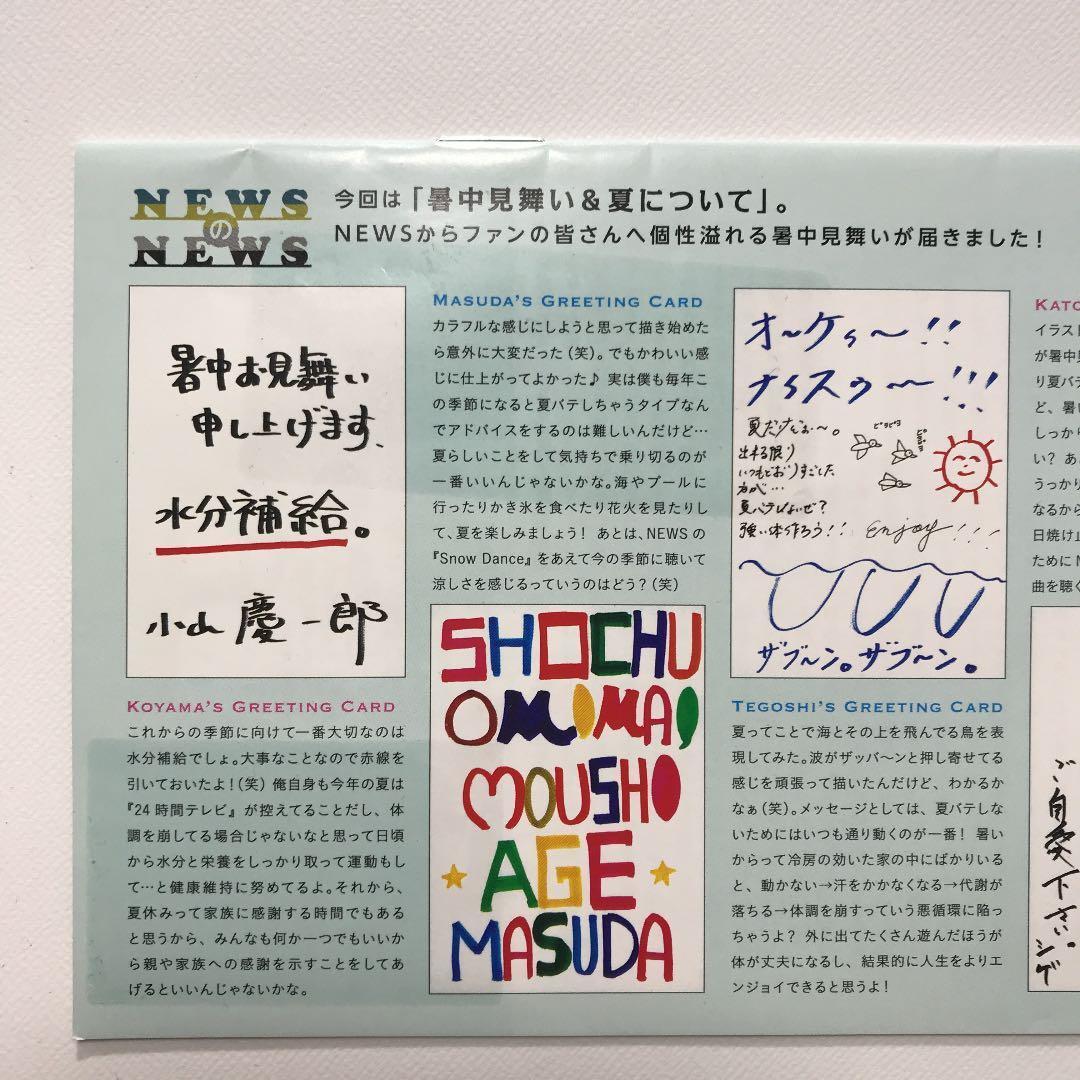 NEWS
の
NEWS
今回は「暑中見舞い＆夏について」。
NEWSからファンの皆さんへ個性溢れる暑中見舞いが届きました！
暑中お見舞い
申し上げます、
水分補給。
小山慶一郎
KOYAMA'S GREETING CARD
これからの季節に向けて一番大切なのは
水分補給でしょ。大事なことなので赤線を
引いておいたよ！（笑）俺自身も今年の夏は
『24時間テレビ』が控えてることだし、体
調を崩してる場合じゃないなと思って日頃
から水分と栄養をしっかり取って運動もし
て…と健康維持に努めてるよ。それから、
夏休みって家族に感謝する時間でもある
と思うから、みんなも何か一つでもいいか
ら親や家族への感謝を示すことをしてあ
げるといいんじゃないかな。
MASUDA'S GREETING CARD
カラフルな感じにしようと思って描き始めた
ら意外に大変だった（笑）。でもかわいい感
じに仕上がってよかった♪ 実は僕も毎年こ
の季節になると夏バテしちゃうタイプなん
でアドバイスをするのは難しいんだけど…
夏らしいことをして気持ちで乗り切るのが
一番いいんじゃないかな。海やプールに
行ったりかき氷を食べたり花火を見たりし
て、夏を楽しみましょう！ あとは、NEWSの
『Snow Dance』をあえて今の季節に聴いて
涼しさを感じるっていうのはどう？（笑）
SHOCHU
OMIMAI
MOUSHI
AGE
MASUDA
オ〜ケぃ〜!!
ナイスぅ〜!!!
夏だけどぉ〜。
出来る限り
いつもどおりすごした
方が…
夏バテしないぜ?
強い体作ろう!!
Enjoy!!!
ザブ〜ン。ザブ〜ン。
TEGOSHI'S GREETING CARD
夏ってことで海とその上を飛んでる鳥を表
現してみた。波がザッバ〜ンと押し寄せてる
感じを頑張って描いたんだけど、わかるか
なぁ（笑）。メッセージとしては、夏バテしな
いためにはいつも通り動くのが一番！ 暑い
からって冷房の効いた家の中にばかりいる
と、動かない→汗をかかなくなる→代謝が
落ちる→体調を崩すっていう悪循環に陥っ
ちゃうよ？ 外に出てたくさん遊んだほうが
体が丈夫になるし、結果的に人生をよりエ
ンジョイできると思うよ！
KATO
イラスト
が暑中見
り夏バテ
ど、暑
しっかり
い？ あ
うっかり
なるから
日焼け止
ためにN
曲を聴く
ご自愛下さい。
シゲ